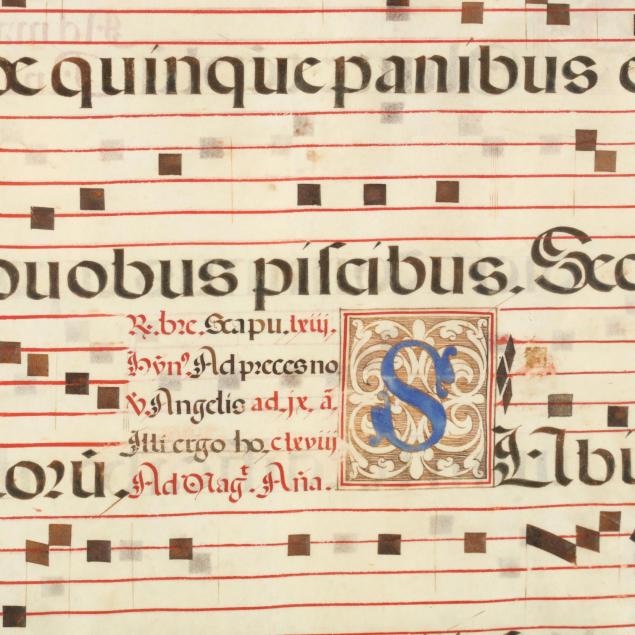 quinque panibus
duobus piscibus. Sec
R. bre. Scapu. lxiij.
Hỹn⁹. Ad preces no
V. Angelis ad. jx. ã.
Illi ergo ho. clxviij
orũ. Ad Mag^t. Aña. S Ubi